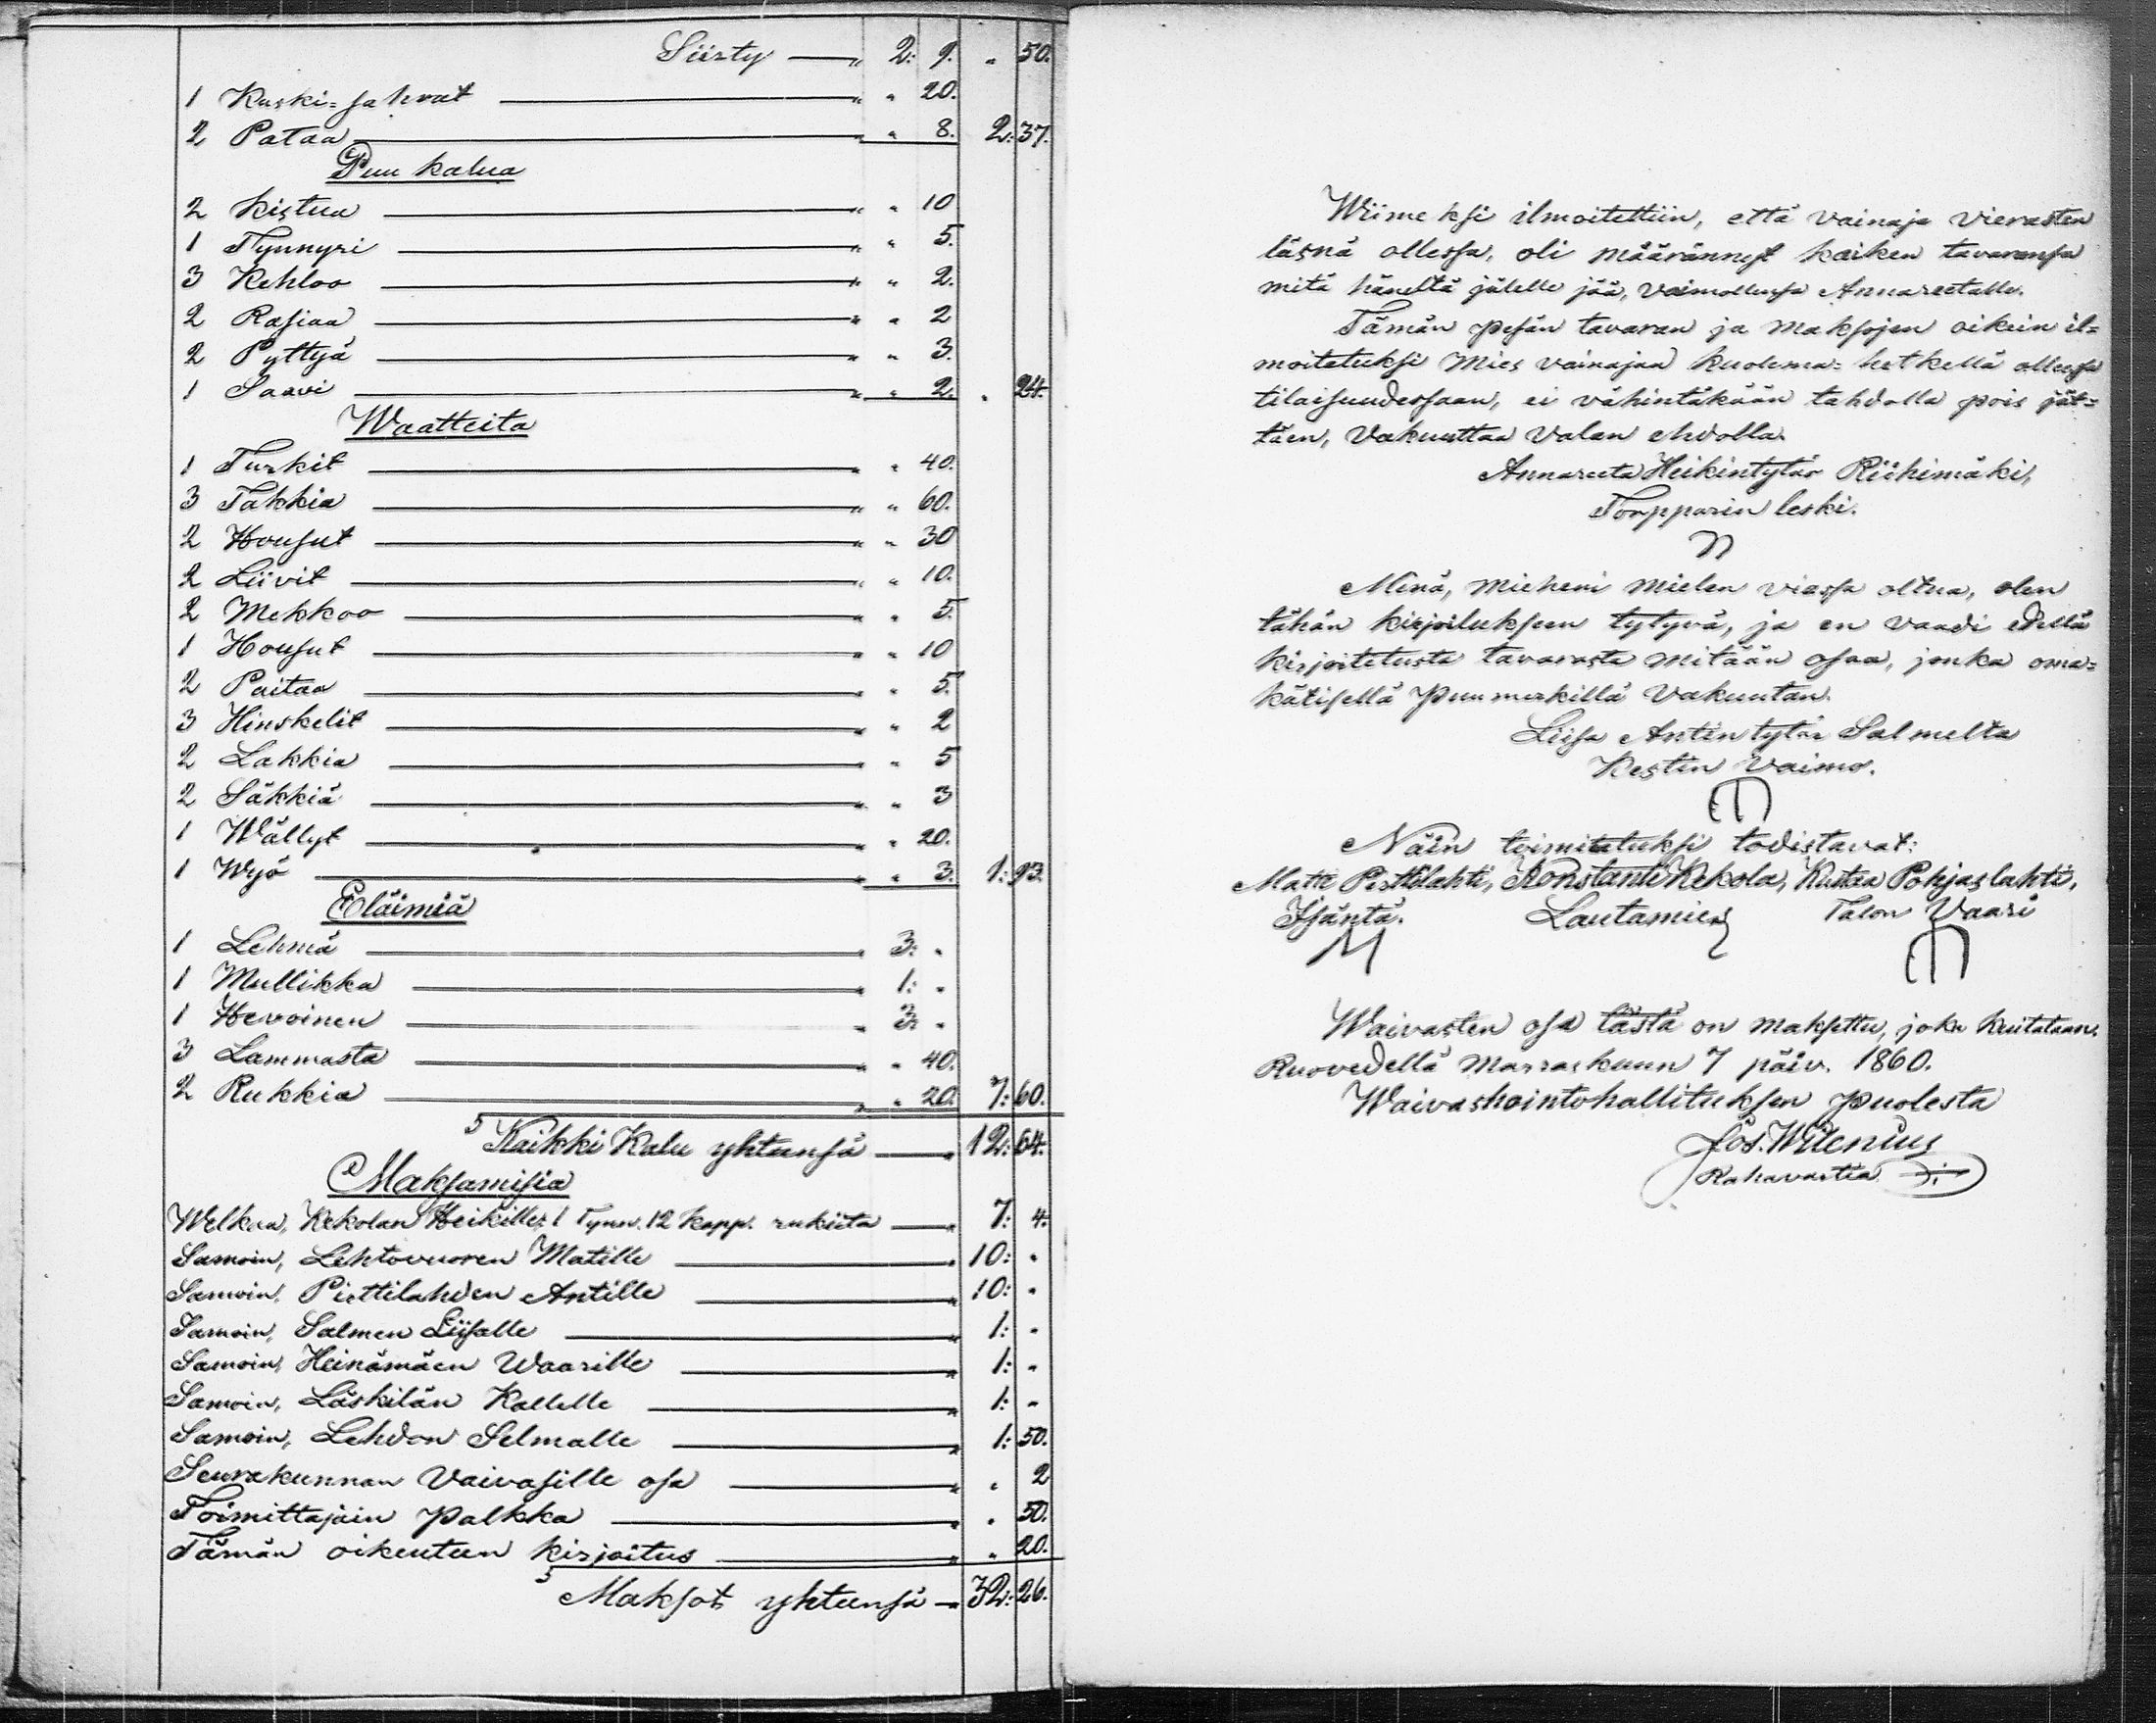 Siirty — „ 2: 9. „ 50.
1 Kaski-sahrat — „ „ 20.
2 Pataa — „ „ 8. 2: 37.
Puu kalua
2 Kistua — „ „ 10
1 Tynnyri — „ „ 5.
3 Kehloo — „ „ 2.
2 Rasiaa — „ „ 2
2 Pyttyä — „ „ 3.
1 Saavi — „ „ 2. „ 24.
Waatteita
1 Turkit — „ „ 40.
3 Takkia — „ „ 60.
2 Housut — „ „ 30
2 Liivit — „ „ 10.
2 Mekkoo — „ „ 5.
1 Housut — „ „ 10
2 Paitaa — „ „ 5.
3 Hinskelit — „ „ 2
2 Lakkia — „ „ 5
2 Säkkiä — „ „ 3
1 Wällyt — „ „ 20.
1 Wyö — „ „ 3. 1: 93.
Eläimiä
1 Lehmä — „ 3: „
1 Mullikka — „ 1: „
1 Hevoinen — „ 3: „
3 Lammasta — „ „ 40.
2 Rukkia — „ „ 20. 7: 60.
Kaikki Kalu yhteensä — „ 12: 64.
Maksamisia
Welkaa, Kekolan Heikille, 1 Tynn. 12 kapp. rukiita — „ 7: 4.
Samoin, Lehtovuoren Matille — „ 10: „
Samoin, Piettilahden Antille — „ 10: „
Samoin, Salmen Liisalle — „ 1: „
Samoin, Heinämäen Waarille — „ 1: „
Samoin, Läskilän Kallelle — „ 1: „
Samoin, Lehdon Selmalle — „ 1: 50.
Seurakunnan Vaivasille osa — „ „ 2
Toimittajain Palkka — „ „ 50.
Tämän oikeuteen kirjoitus — „ „ 20.
Maksot yhteensä — „ 32: 26.
Wiimeksi ilmoitettiin, että vainaja vierasten
läsnä ollessa, oli määrännyt kaiken tavaransa
mitä häneltä jälelle jää, vaimollensa Annareetalle.
Tämän pesän tavaran ja maksojen oikein il=
moitetuksi Mies vainajan kuolema=hetkellä olleessa
tilaisuudessaan, ei vähintäkään tahdolla pois jät=
täen, Vakuuttaa Valan ehdolla.
Annareeta Heikintytär Riihimäki,
Torpparin leski.
Minä, mieheni mielen viassa oltua, olen
tähän kirjoitukseen tytyvä, ja en vaadi edellä
kirjoitetusta tavarasta mitään osaa, jonka oma=
kätisellä Puumerkillä Vakuutan.
Liisa Antin tytär Salmelta
Kestin Vaimo.
Näin toimitetuksi todistavat:
Matti Perttilahti, Konstanti Kekola, Kustaa Pohjaslahti,
Isäntä. Lautamies Talon Vaari
Waivasten osa tästä on maksettu, joka kuitataan.
Ruovedellä Marraskuun 7 päiv. 1860.
Waivashointohallituksen puolesta
Jos. Wilenius
Rahavartia